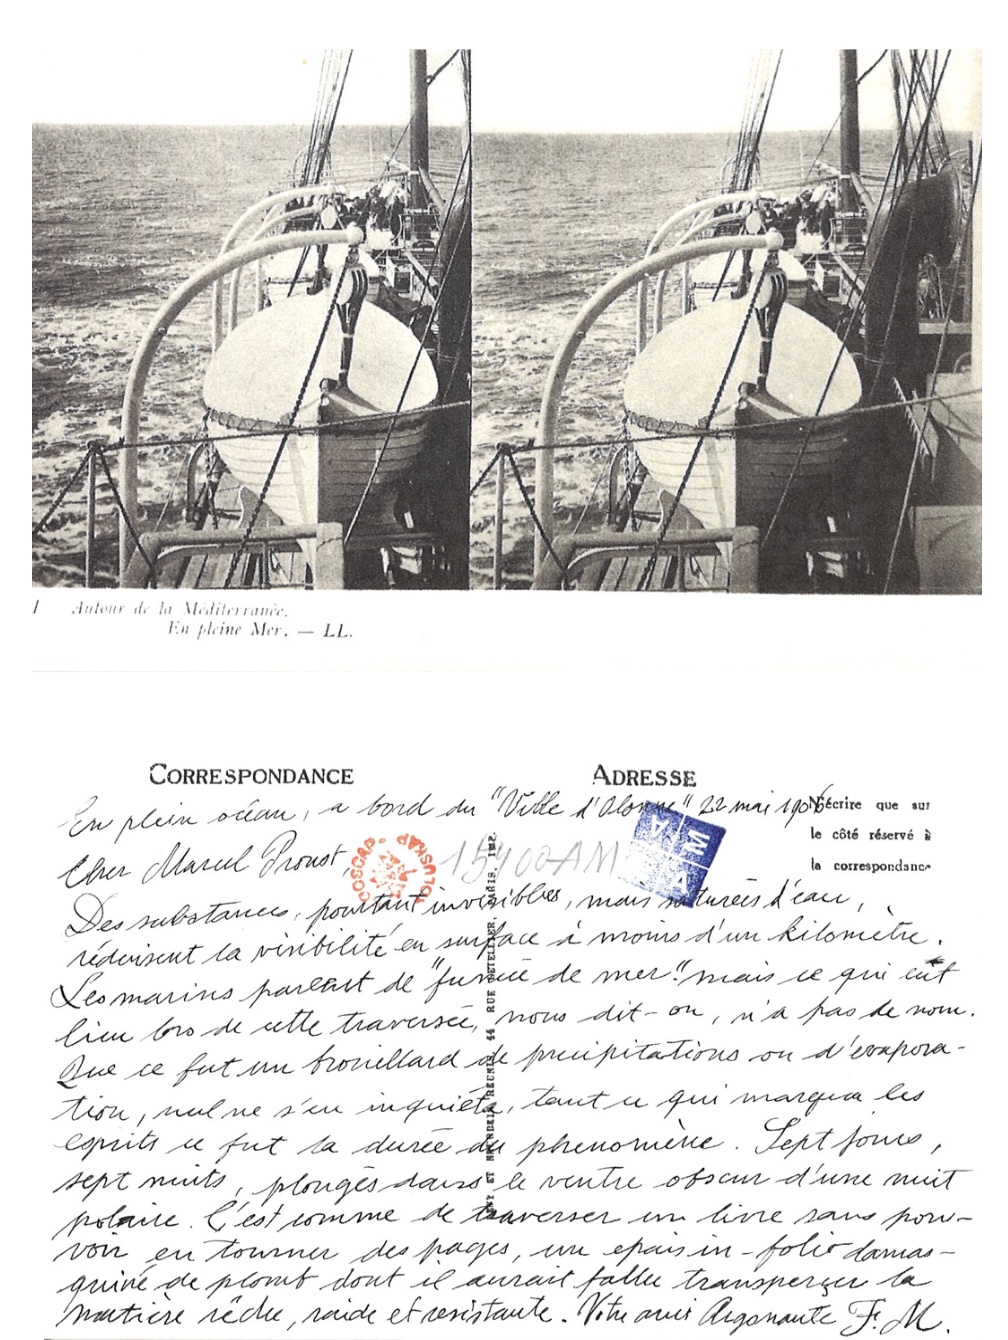 1 Autour de la Méditerranée.
En pleine Mer. — LL.
CORRESPONDANCE
ADRESSE
N'écrire que sur
le côté réservé à
la correspondance
En plein océan, a bord du "Ville d'Olonne" 22 mai 1906
Cher Marcel Proust,
15400AM
Des substances, pourtant invisibles, mais saturées d'eau,
réduisent la visibilité en surface à moins d'un kilomètre.
Les marins parlent de "fumée de mer" mais ce qui eut
lieu lors de cette traversée, nous dit-on, n'a pas de nom.
Que ce fut un brouillard de précipitations ou d'évapora-
tion, nul ne s'en inquiéta, tant ce qui marqua les
esprits ce fut la durée du phenomène. Sept jours,
sept nuits, plongés dans le ventre obscur d'une nuit
polaire. C'est comme de traverser un livre sans pou-
voir en tourner des pages, un epais in-folio damas-
quiné de plomb dont il aurait fallu transperçer la
matière rêche, raide et resistante. Votre ami Argonaute F. M.